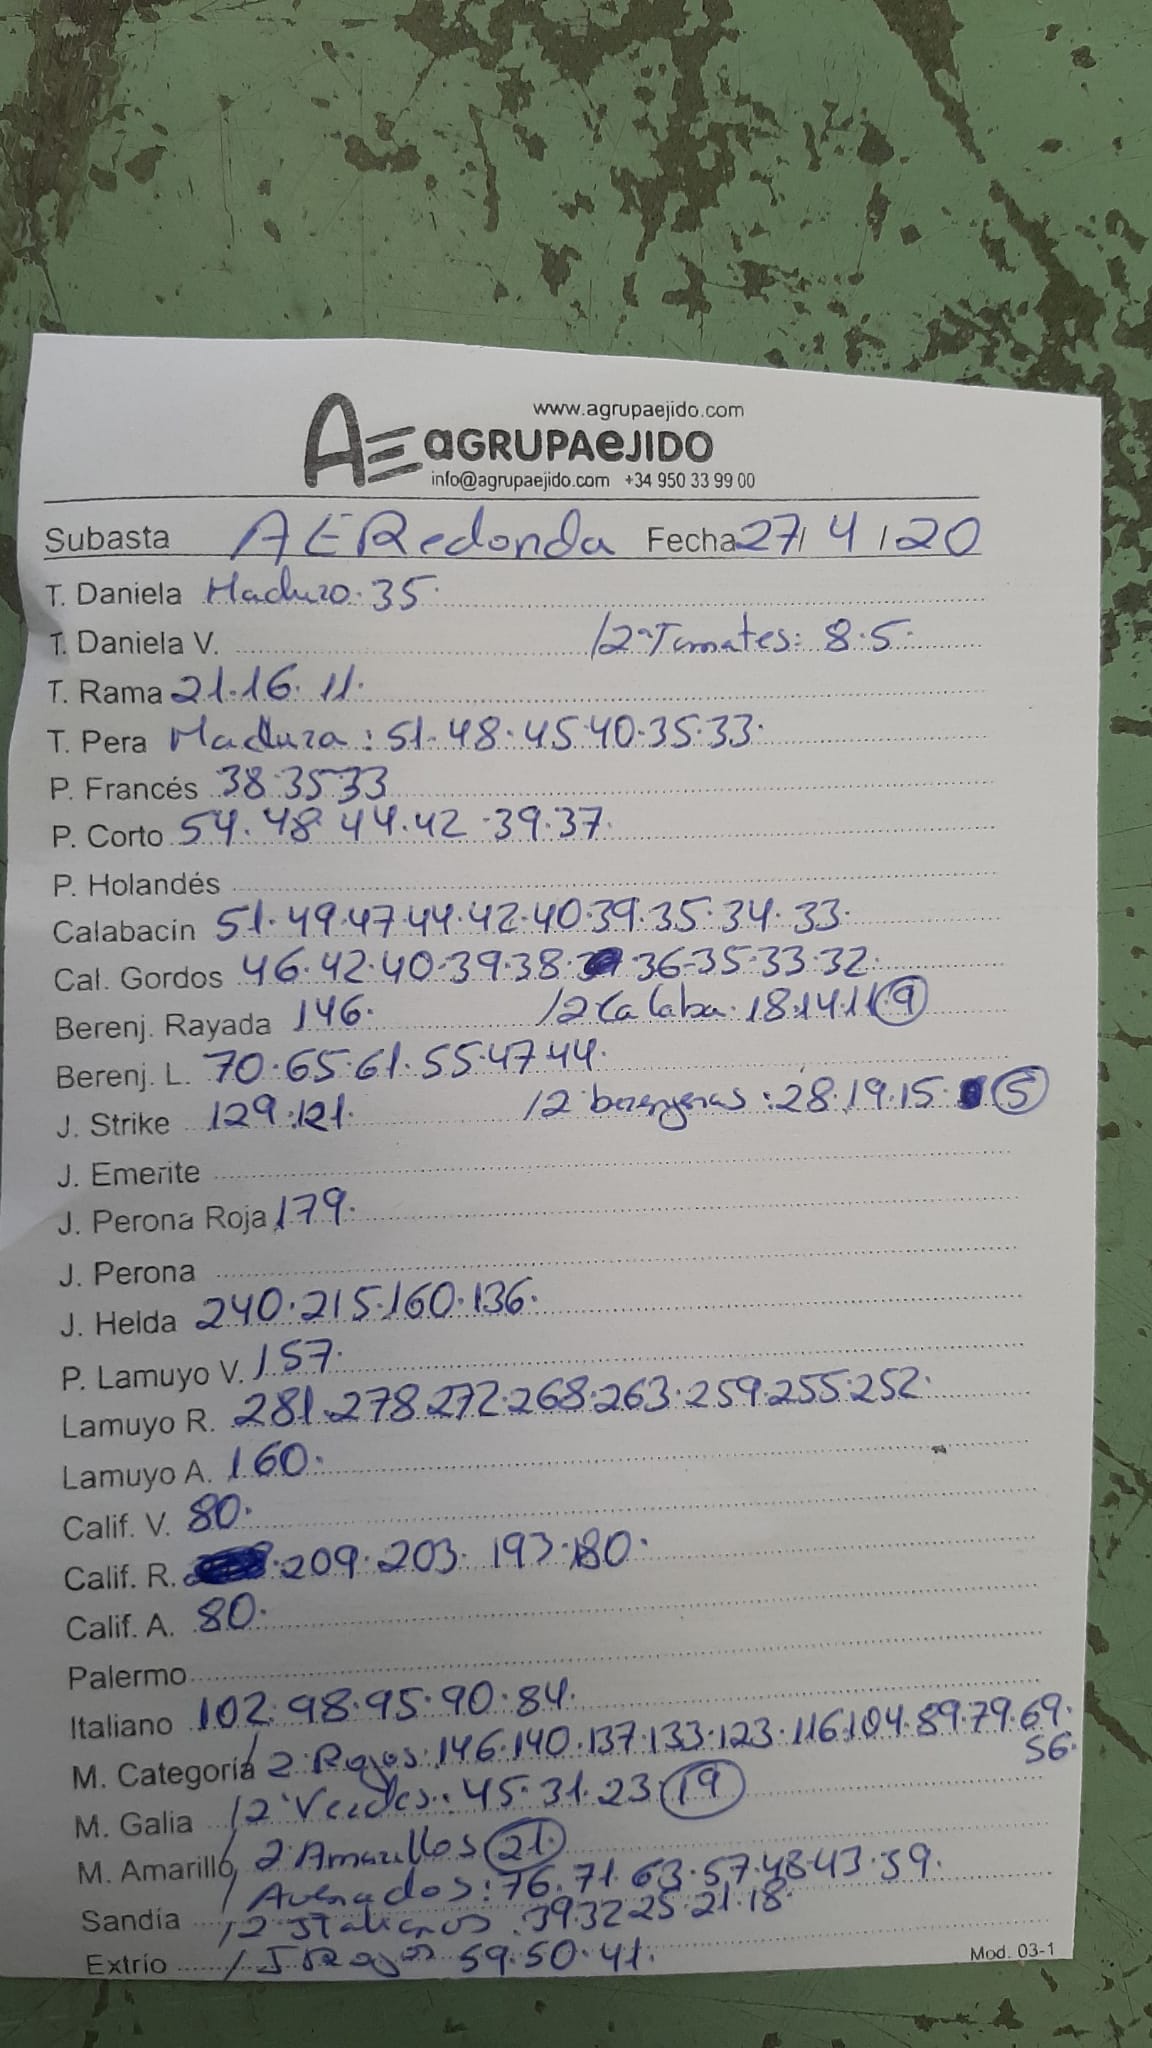 www.agrupaejido.com
AE aGRUPAeJIDO
info@agrupaejido.com +34 950 33 99 00
Subasta AE Redonda Fecha 27/4/20
T. Daniela Maduro. 35.
T. Daniela V. /2ª Tomates: 8.5.
T. Rama 21.16.11.
T. Pera Madura: 51.48.45.40.35.33.
P. Francés 38.35 33
P. Corto 54.48 44.42.39.37.
P. Holandés
Calabacin 51.49.47.44.42.40.39.35.34.33.
Cal. Gordos 46.42.40.39.38. 36-35.33.32.
Berenj. Rayada 146. /2 Calaba. 18.14.11 (9)
Berenj. L. 70.65.61.55.47.44.
J. Strike 129.121. /2 berenjenas: 28.19.15. (5)
J. Emerite
J. Perona Roja 179.
J. Perona
J. Helda 240.215.160.136.
P. Lamuyo V. 157.
Lamuyo R. 281.278.272.268.263.259.255.252.
Lamuyo A. 160.
Calif. V. 80.
Calif. R. 209.203. 193.180.
Calif. A. 80.
Palermo
Italiano 102.98.95.90.84.
M. Categoría /2 Rojos: 146.140.137.133.123.116.104.89.79.69.
56.
M. Galia /2ª Verdes: 45.31.23. (19)
M. Amarillo /2 Amarillos (21.)
/Asurcados: 76.71.63.57.48.43.39.
Sandía /2 Italianos. 39.32 25.21.18.
Extrío / J Rojos 59.50.41.
Mod. 03-1